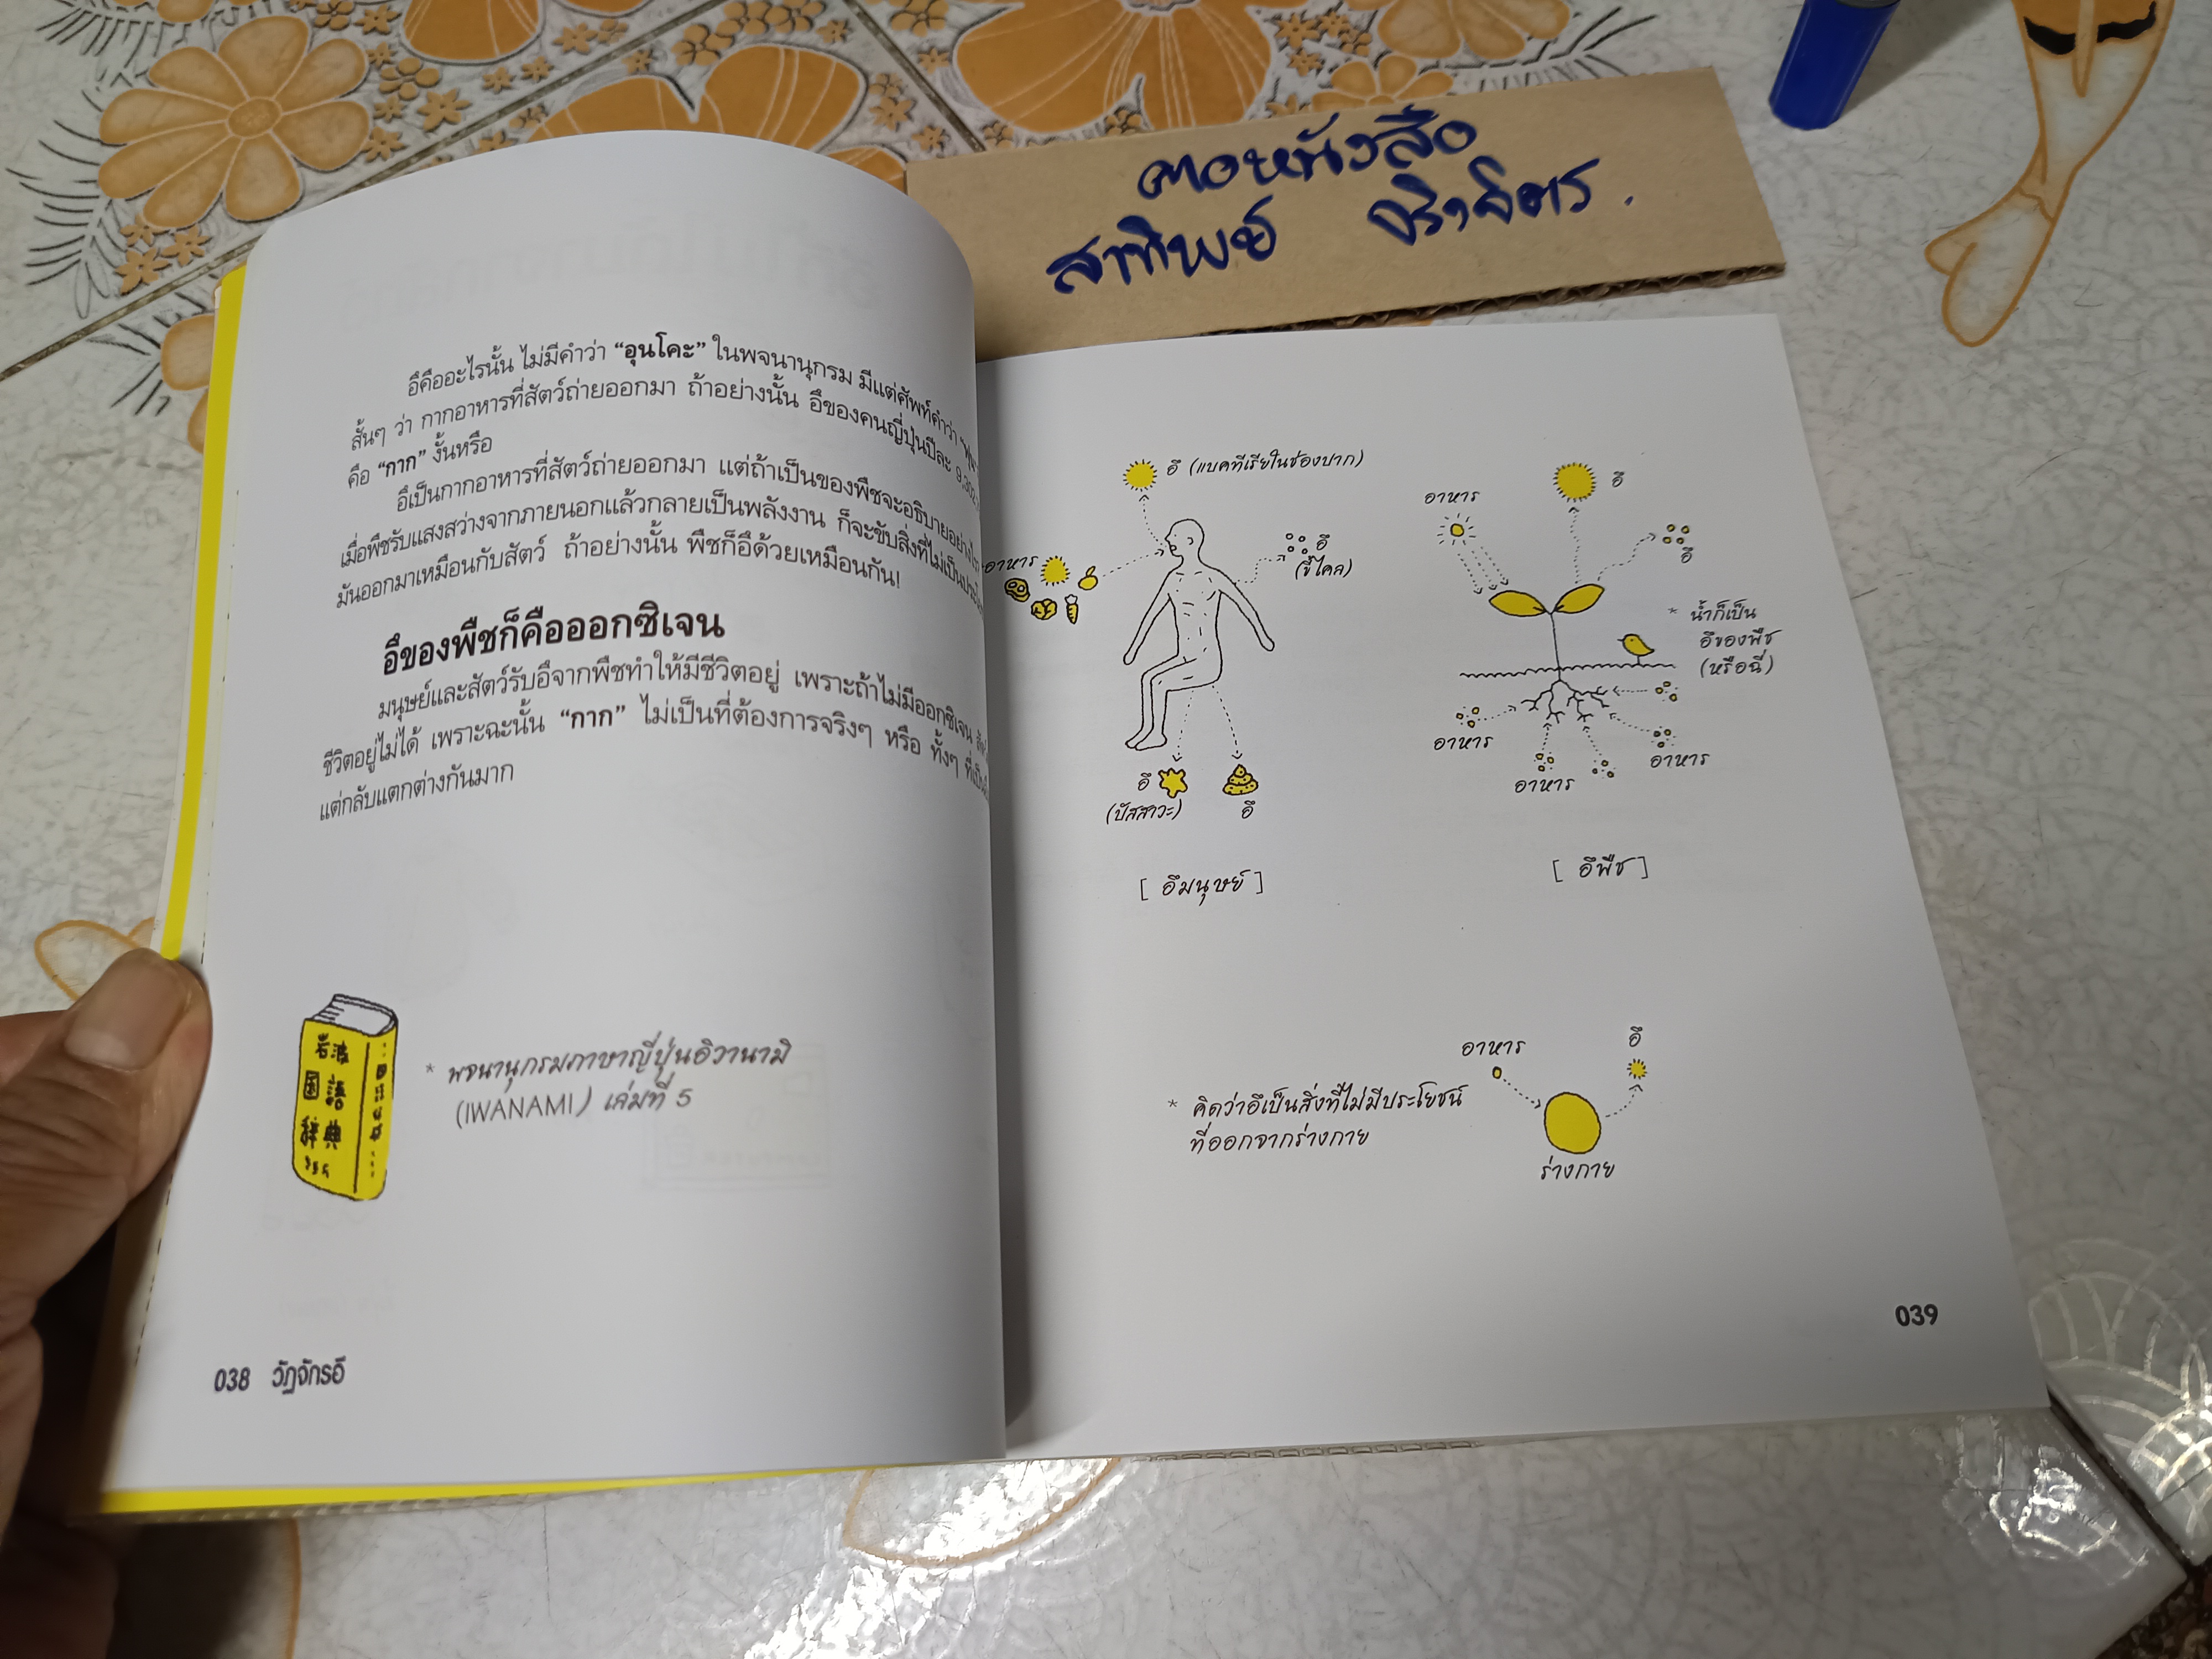 คอหนังสือ
สาทิพย์ จิราจิตร.
อึคืออะไรนั้น ไม่มีคำว่า “อุนโคะ” ในพจนานุกรม มีแต่ศัพท์คำว่า
สั้นๆ ว่า กากอาหารที่สัตว์ถ่ายออกมา ถ้าอย่างนั้น อึของคนญี่ปุ่นปีละ 9,302
คือ “กาก” งั้นหรือ
อึเป็นกากอาหารที่สัตว์ถ่ายออกมา แต่ถ้าเป็นของพืชจะอธิบายอย่างไร
เมื่อพืชรับแสงสว่างจากภายนอกแล้วกลายเป็นพลังงาน ก็จะขับสิ่งที่ไม่เป็น
มันออกมาเหมือนกับสัตว์ ถ้าอย่างนั้น พืชก็อึด้วยเหมือนกัน!
อึของพืชก็คือออกซิเจน
มนุษย์และสัตว์รับอึจากพืชทำให้มีชีวิตอยู่ เพราะถ้าไม่มีออกซิเจน
ชีวิตอยู่ไม่ได้ เพราะฉะนั้น “กาก” ไม่เป็นที่ต้องการจริงๆ หรือ ทั้งๆ ที่เป็น
แต่กลับแตกต่างกันมาก
岩波
国語
辞典
* พจนานุกรมภาษาญี่ปุ่นอิวานามิ
(IWANAMI) เล่มที่ 5
038 วัฏจักรอึ
อึ (แบคทีเรียในช่องปาก)
อาหาร
อึ
(ขี้ไคล)
อึ
(ปัสสาวะ)
อึ
[ อึมนุษย์ ]
อาหาร
อึ
อึ
* น้ำก็เป็น
อึของพืช
(หรือฉี่)
อาหาร
อาหาร
อาหาร
[ อึพืช ]
* คิดว่าอึเป็นสิ่งที่ไม่มีประโยชน์
ที่ออกจากร่างกาย
อาหาร
อึ
ร่างกาย
039